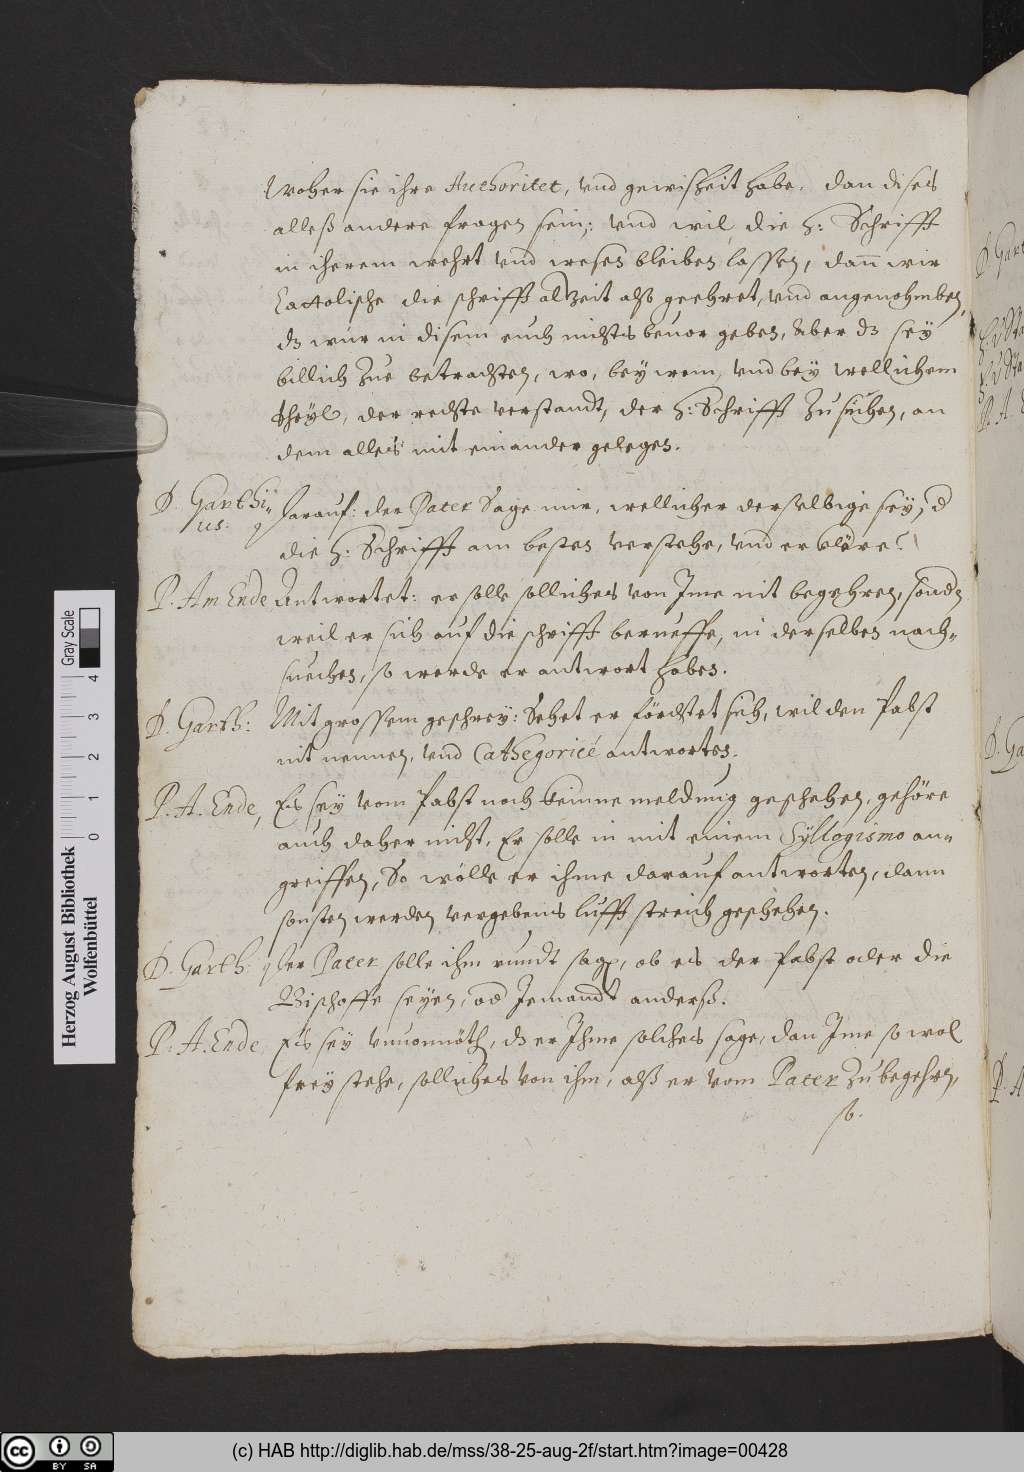 Woher sie ihre Authoritet, vnd gewisheit habe, dan dises
alleß andere fragen sein; vnd wil die h: Schrifft
in iherem wehrt vnd wesen bleiben lassen, dann wir
Cattolische die schrifft alzeit alß geehret, vnd angenohmben,
dz wür in disem euch nichts beuor geben, Aber dz sey
billich zue betrachten, wo, bey wem, vnd bey wellichem
Theyl, der rechte verstandt, der h: Schrifft zu suchen, an
dem alles mit einander gelegen.
D. Garthi= Darauf: der Pater Sage mir, wellicher derselbige sey, d
us: die h: Schrifft am besten verstehe, vnd erkläre?
P. Am Ende Antwortet: er solle solliches von Ime nit begehren, sondn
weil er sich auf die schrifft berueffe, in derselben nach=
suechen, so werde er antwort haben.
D. Garth: Mit grossem geschrey: Sehet er förchtet sich, wil den Pabst
nit nennen, vnd Cathegoricé antworten.
P. A. Ende, Es sey vom Pabst noch keinne meldung geschehen, gehöre
auch daher nicht, Er solle in mit einem Syllogismo an=
greiffen, So wölle er ihme darauf antworten, dann
sonsten werden vergebens lufft streich geschehen.
D. Garth: Der Pater solle ihm rundt sagen, ob es der Pabst oder die
Bischoffe seyen, od Jemandt anderß.
P. A. Ende Es sey vnuonnöth, dz er Ihme solches sage, dan Ime so wol
frey stehe, solliches von ihm, alß er vom Pater zu begehrn,
so.
D. Gart
P. A.
D. Ga
P. A
Herzog August Bibliothek
Wolfenbüttel
Gray Scale
0 1 2 3 4
cc BY SA
(c) HAB http://diglib.hab.de/mss/38-25-aug-2f/start.htm?image=00428